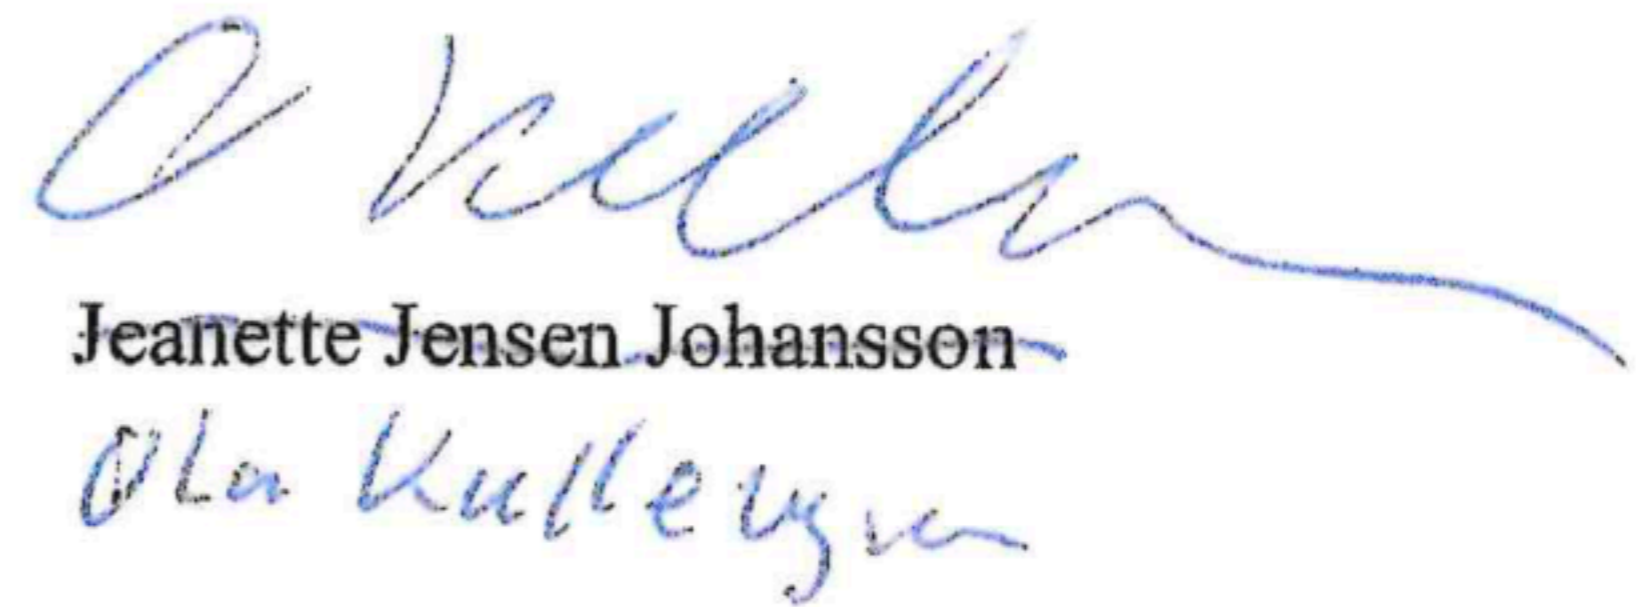 O Kulle
Jeanette Jensen Johansson
Ola Kullevgren